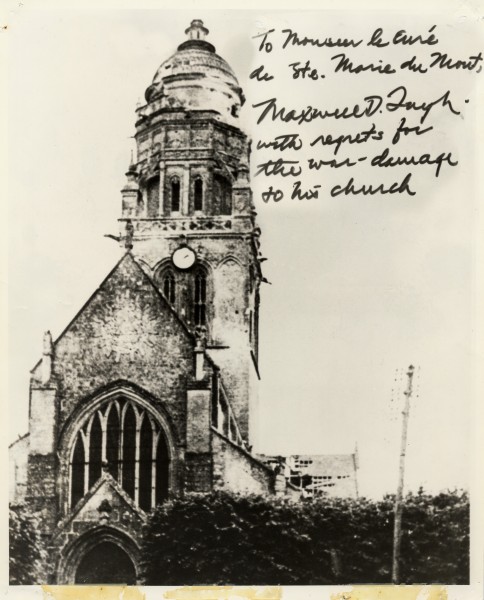 To Monsieur le Curé
de Ste. Marie du Mont,
Maxwell D. Taylor.
with regrets for
the war-damage
to his church